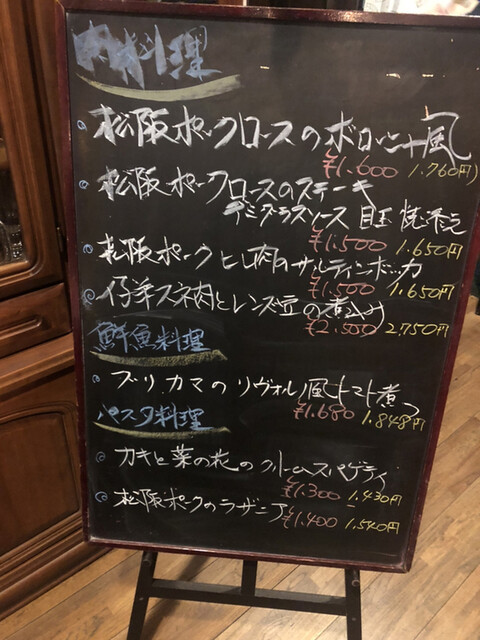 肉料理
松阪ポークロースのボローニャ風
¥1.600 1.760円)
松阪ポークロースのステーキ
デミグラスソース 目玉焼添え
¥1.500 1.650円
松阪ポークヒレ肉のサルティンボッカ
¥1.500 1.650円
仔羊スネ肉とレンズ豆の煮込み
¥2.500 2.750円
鮮魚料理
ブリカマのリヴォルノ風トマト煮
¥1.680 1.848円
パスタ料理
カキと菜の花のクリームスパゲティ
¥1.300 1.430円
松阪ポークのラザニア
¥1.400 1.540円